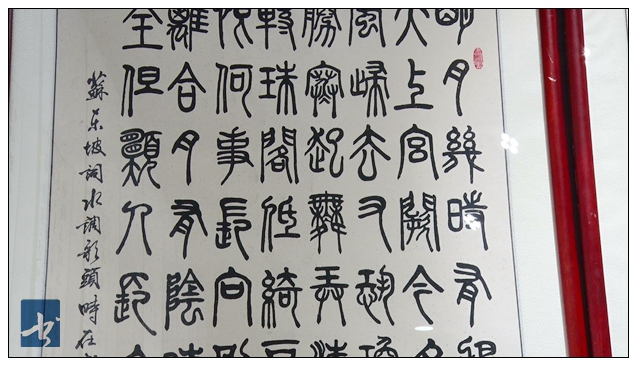 明月幾時有把
天上宮闕今夕
風歸去又恐瓊
勝寒起舞弄清
轉珠閣低綺戶
恨何事長向別
離合月有陰晴
全但願人長久
蘇東坡詞水調歌頭時在